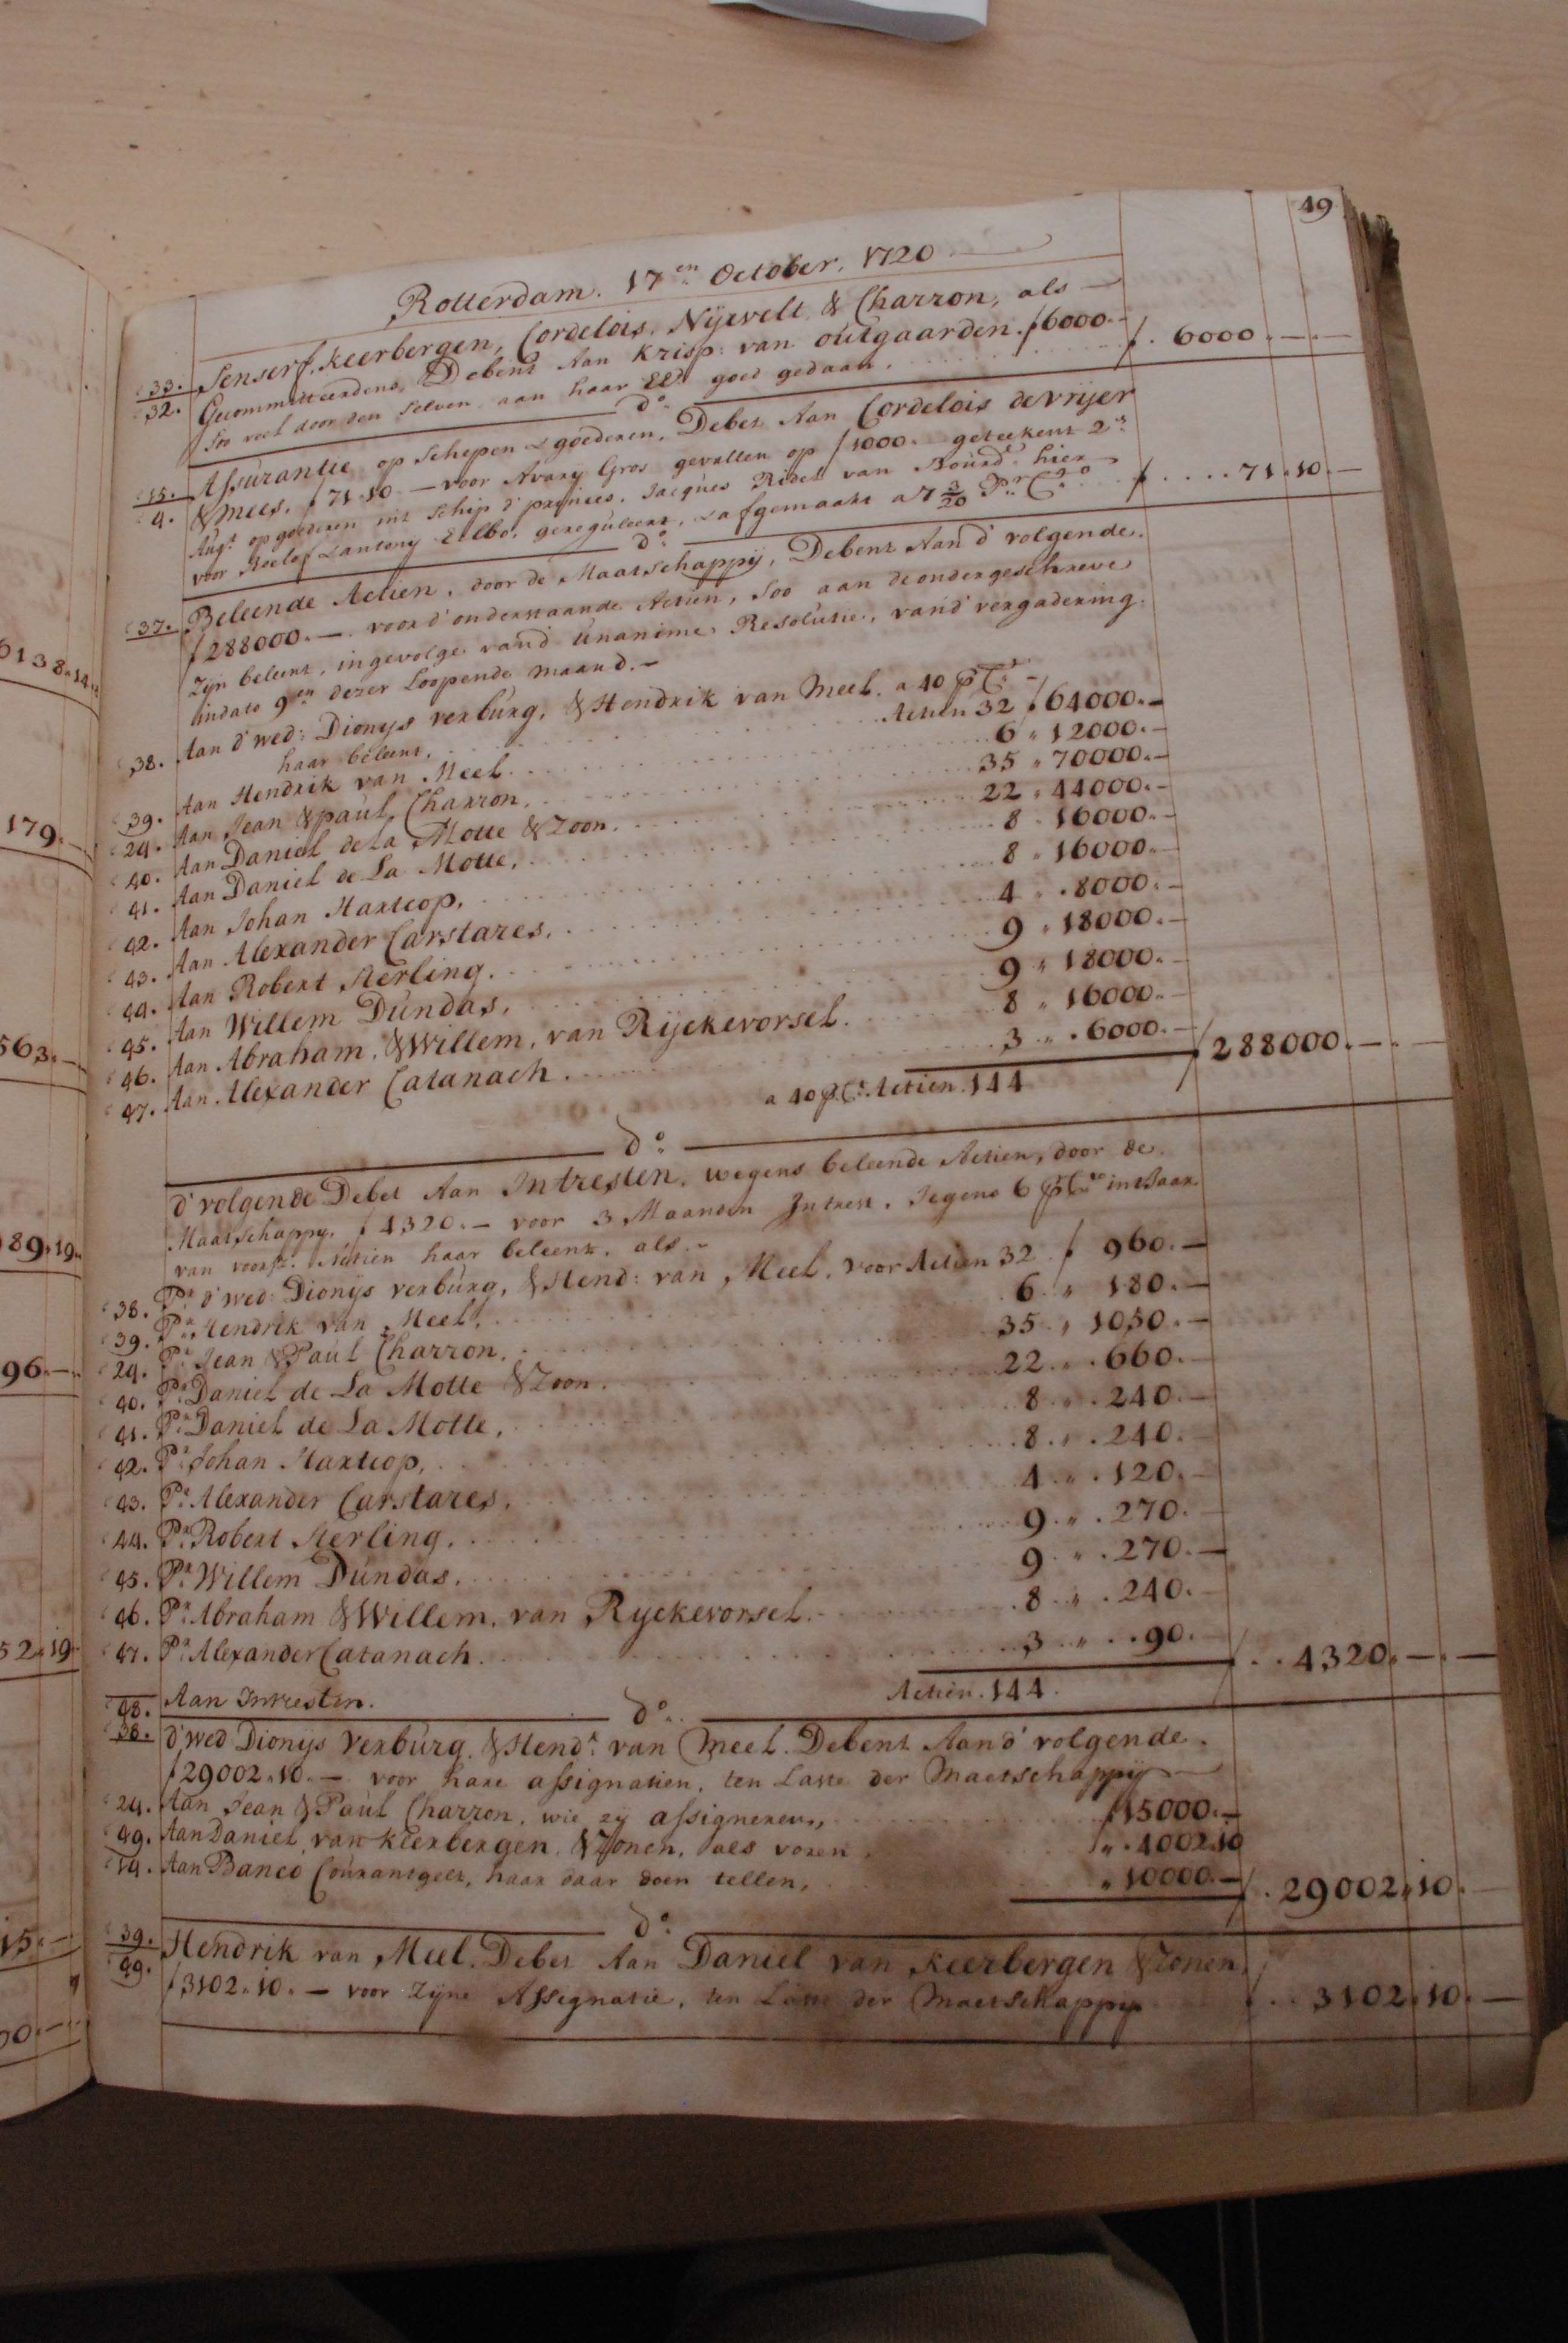 49
Rotterdam. 17en October. 1720
33. Senserf, keerbergen, Cordelois, Nijevelt & Charron, als
32. Gecommitteerdens, Debent Aan Krisp: van outgaarden. f6000.-
Soo veel door den selven aan haar Ed: goed gedaan. f. 6000.—.—
do
15. Assurantie op Schepen & goederen, Debet Aan Cordelois de vrijer
4. & Mees, f 71.10.— voor Avary Gros gevallen op f1000.- geteekent 2en
Augt op goederen int Schip d' prinses. Jacques Ridel van Bourdx hier
voor Roelof & antony Elbo, gereguleert, & afgemaakt a 7 3/20 Pr Cto f....71.10.—
do
37. Beleende Actien, door de Maatschappij, Debent Aan d' volgende.
f288000.— voor d' onderstaande Actien, Soo aan de ondergeschreve
Zijn beleent, ingevolge vand Unanime Resolutie, vand vergadering
indato 9en dezer Loopende maand.-
38. Aan d' wed: Dionys verburg, & Hendrik van Meel. a 40 pCt -
haar beleent. Actien 32 f64000.-
39. Aan Hendrik van Meel. 6 " 12000.-
24. Aan Jean & paul Charron, 35 " 70000.-
40. Aan Daniel de la Motte & Zoon. 22 " 44000.-
41. Aan Daniel de La Motte, 8 " 16000.-
42. Aan Johan Hartcop, 8 " 16000.-
43. Aan Alexander Carstares, 4 " .8000.-
44. Aan Robert Sterling. 9 " 18000.-
45. Aan Willem Dundas, 9 " 18000.-
46. Aan Abraham, & Willem, van Rijckevorsel. 8 " 16000.-
47. Aan Alexander Catanach. 3 " .6000.-
a 40 pCt Actien. 144 f288000.—.—
do
d' volgende Debet Aan Intresten, wegens beleende Actien, door de
Maatschappy, f 4320.— voor 3 Maanden Intrest, Jegens 6 pCto int Jaar
van voorsz. Actien haar beleent. als.-
38. Pr d' wed: Dionijs verburg, & Hend: van Meel. voor Actien 32 f 960.—
39. Pr Hendrik van Meel, 6 " 180.—
24. Pr Jean & Paul Charron, 35 " 1050.—
40. Pr Daniel de La Motte & Zoon. 22 " .660.—
41. Pr Daniel de La Motte, 8 " .240.—
42. Pr Johan Hartcop, 8 " .240.—
43. Pr Alexander Carstares, 4 " .120.—
44. Pr Robert Sterling, 9 " .270.—
45. Pr Willem Dundas, 9 " .270.—
46. Pr Abraham & Willem, van Ryckevorsel. 8 " .240.—
47. Pr Alexander Catanach. 3 " ..90.—
48. Aan Intresten. Actien. 144. f..4320.—.—
do
38. d' wed Dionijs Verburg, & Hendr van Meel. Debent Aan d' volgende.
f29002.10.— voor hare assignatien, ten Laste der Maetschappij
24. Aan Jean & Paul Charron, wie zij assigneren, f15000.—
49. Aan Daniel van Keerbergen, & Zonen, als voren " .4002.10
14. Aan Banco Courantgelt, haar daar doen tellen, " 10000.— f. 29002.10.—
do
39. Hendrik van Meel. Debet Aan Daniel van Keerbergen & Zonen,
49. f3102.10.— voor Zijne Assignatie, ten Laste der Maetschappy f..3102.10.—
138.14
179.
563.—
89.19.
96.—
52.19.
15.—